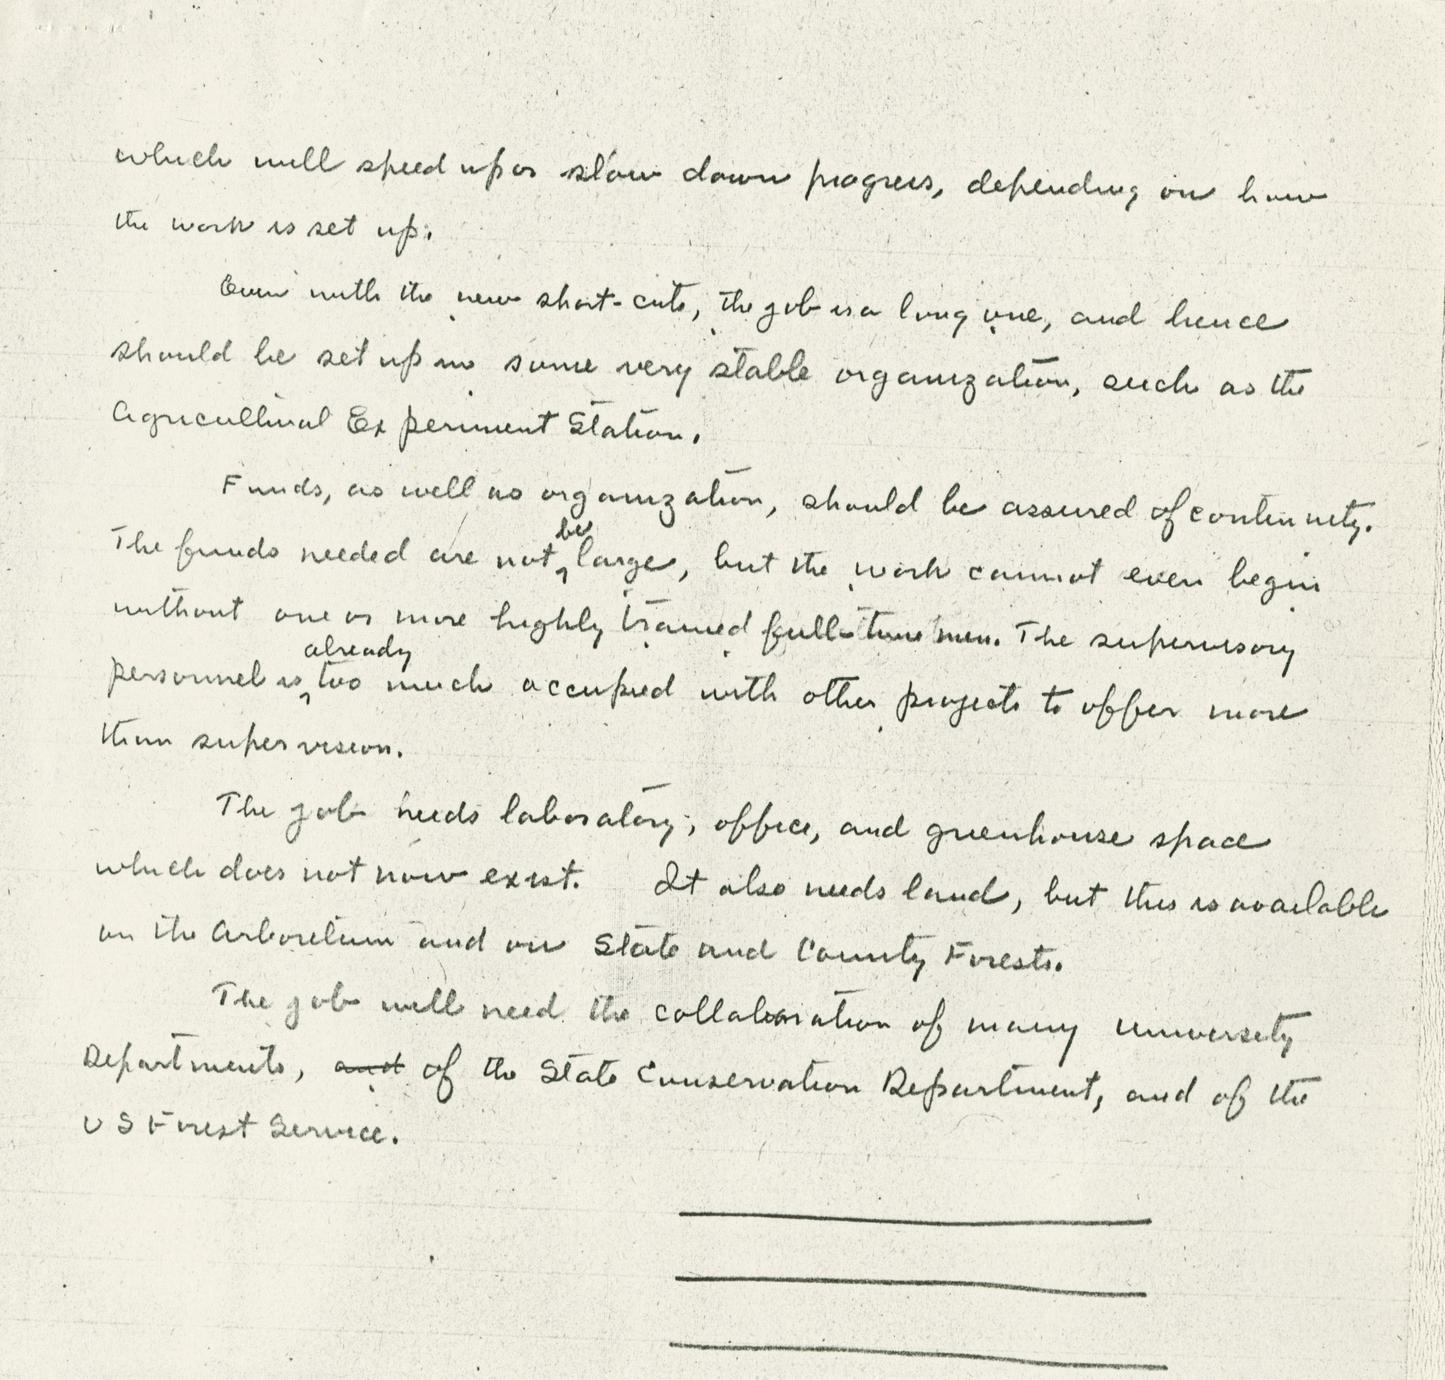 which will speed up or slow down progress, depending on how
the work is set up.
Even with the new short-cuts, the job is a long one, and hence
should be set up in some very stable organization, such as the
Agricultural Experiment Station.
Funds, as well as organization, should be assured of continuity.
be
The funds needed are not large, but the work cannot even begin
without one or more highly trained full-time men. The supervisory
already
personnel is too much occupied with other projects to offer more
than supervision.
The job needs laboratory, office, and greenhouse space
which does not now exist. It also needs land, but this is available
on the Arboretum and on State and County Forests.
The job will need the collaboration of many University
Departments, and of the State Conservation Department, and of the
US Forest Service.